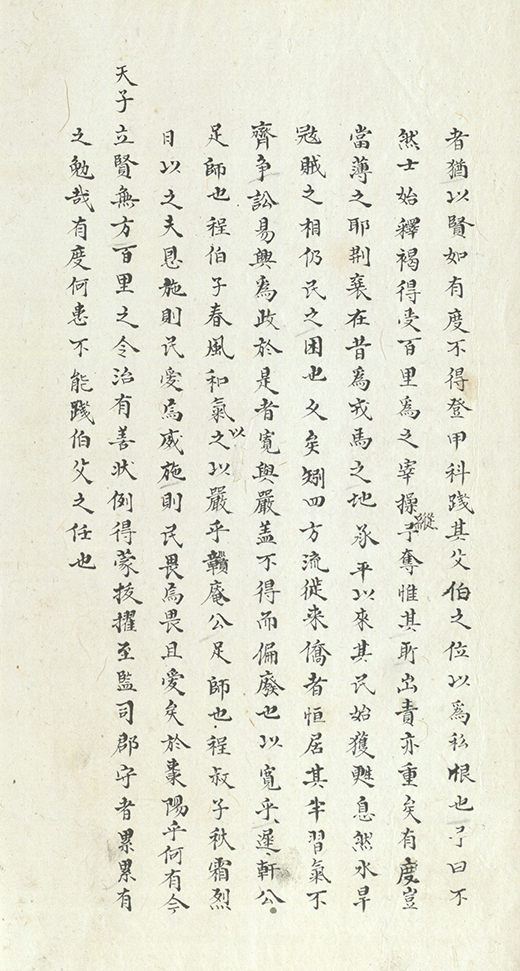 者猶以賢如有度不得登甲科踐其父伯之位以為私恨也予曰不
然士始釋褐得受百里為之宰操縱予奪惟其所出責亦重矣有度豈
當薄之耶荆襄在昔為戎馬之地承平以來其民始獲甦息然水旱
寇賊之相仍民之困也久矣矧四方流徙来僑者恒居其半習氣不
齊争訟易興為政於是者寬與嚴盖不得而偏廢也以寬乎遲軒公
足師也程伯子春風和氣以之以嚴乎庵公足師也程叔子秋霜烈
日以之夫恩施則民愛焉威施則民畏焉畏且愛矣於棗陽乎何有今
天子立賢無方百里之令治有善狀例得蒙拔擢至監司郡守者累累有
之勉哉有度何患不能踐伯父之任也